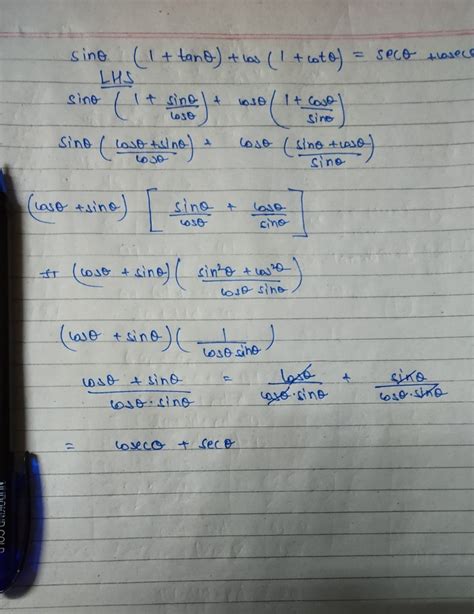 sinθ (1 + tanθ) + cos (1 + cotθ) = secθ + cosec
LHS
sinθ (1 + sinθ/cosθ) + cosθ (1 + cosθ/sinθ)
sinθ (cosθ + sinθ/cosθ) + cosθ (sinθ + cosθ/sinθ)
(cosθ + sinθ) [sinθ/cosθ + cosθ/sinθ]
(cosθ + sinθ) (sin²θ + cos²θ/cosθ sinθ)
(cosθ + sinθ) (1/cosθ sinθ)
cosθ + sinθ/cosθ · sinθ = cosθ/cosθ · sinθ + sinθ/cosθ · sinθ
= cosecθ + secθ